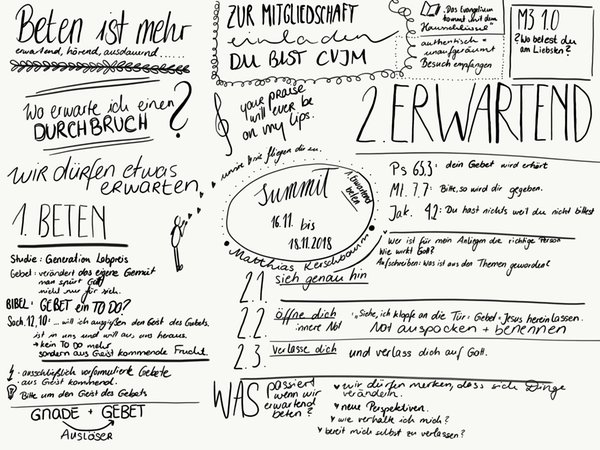 Beten ist mehr
erwartend, hörend, ausdauernd.....
ZUR MITGLIEDSCHAFT
einladen
DU BIST CVJM
"Das Evangelium
kommt mit dem
Hausschlüssel"
authentisch +
unaufgeräumt
Besuch empfangen
M3 1.0
? Wo betest du
am Liebsten?
Wo erwarte ich einen
DURCHBRUCH ?
wir dürfen etwas
erwarten
your praise
will ever be
on my lips.
unsere Knie fliegen dir zu.
Summit
1. Erwartend
beten
16.11. bis
18.11.2018
Matthias Kerschbaum
2. ERWARTEND
Ps 65,3: dein Gebet wird erhört
Mt. 7,7: Bitte, so wird dir gegeben.
Jak. 4,2: Du hast nichts weil du nicht bittest
Wer ist für mein Anliegen die richtige Person
Wie wirkt Gott?
Aufschreiben: Was ist aus den Themen geworden?
1. BETEN
Studie: Generation Lobpreis
Gebet: verändert das eigene Gemüt
man spürt Gott
nicht nur für sich.
BIBEL: GEBET ein TO DO?
Sach. 12,10: ... will ich ausgießen den Geist des Gebets.
ist in uns und will aus uns heraus.
kein TO DO mehr
sondern aus Geist kommende Frucht
: ausschließlich vorformulierte Gebete
: aus Geist kommend.
Bitte um den Geist des Gebets
GNADE + GEBET
Auslöser
2.1. sieh genau hin
2.2. öffne dich
innere Not
"Siehe, ich klopfe an die Tür: Gebet = Jesus hereinlassen.
Not auspacken + benennen
2.3. Verlasse dich und verlass dich auf Gott.
WAS passiert
wenn wir
erwartend
beten?
wir dürfen merken, dass sich Dinge
verändern.
neue Perspektiven.
wie verhalte ich mich?
bereit mich selbst zu verlassen?